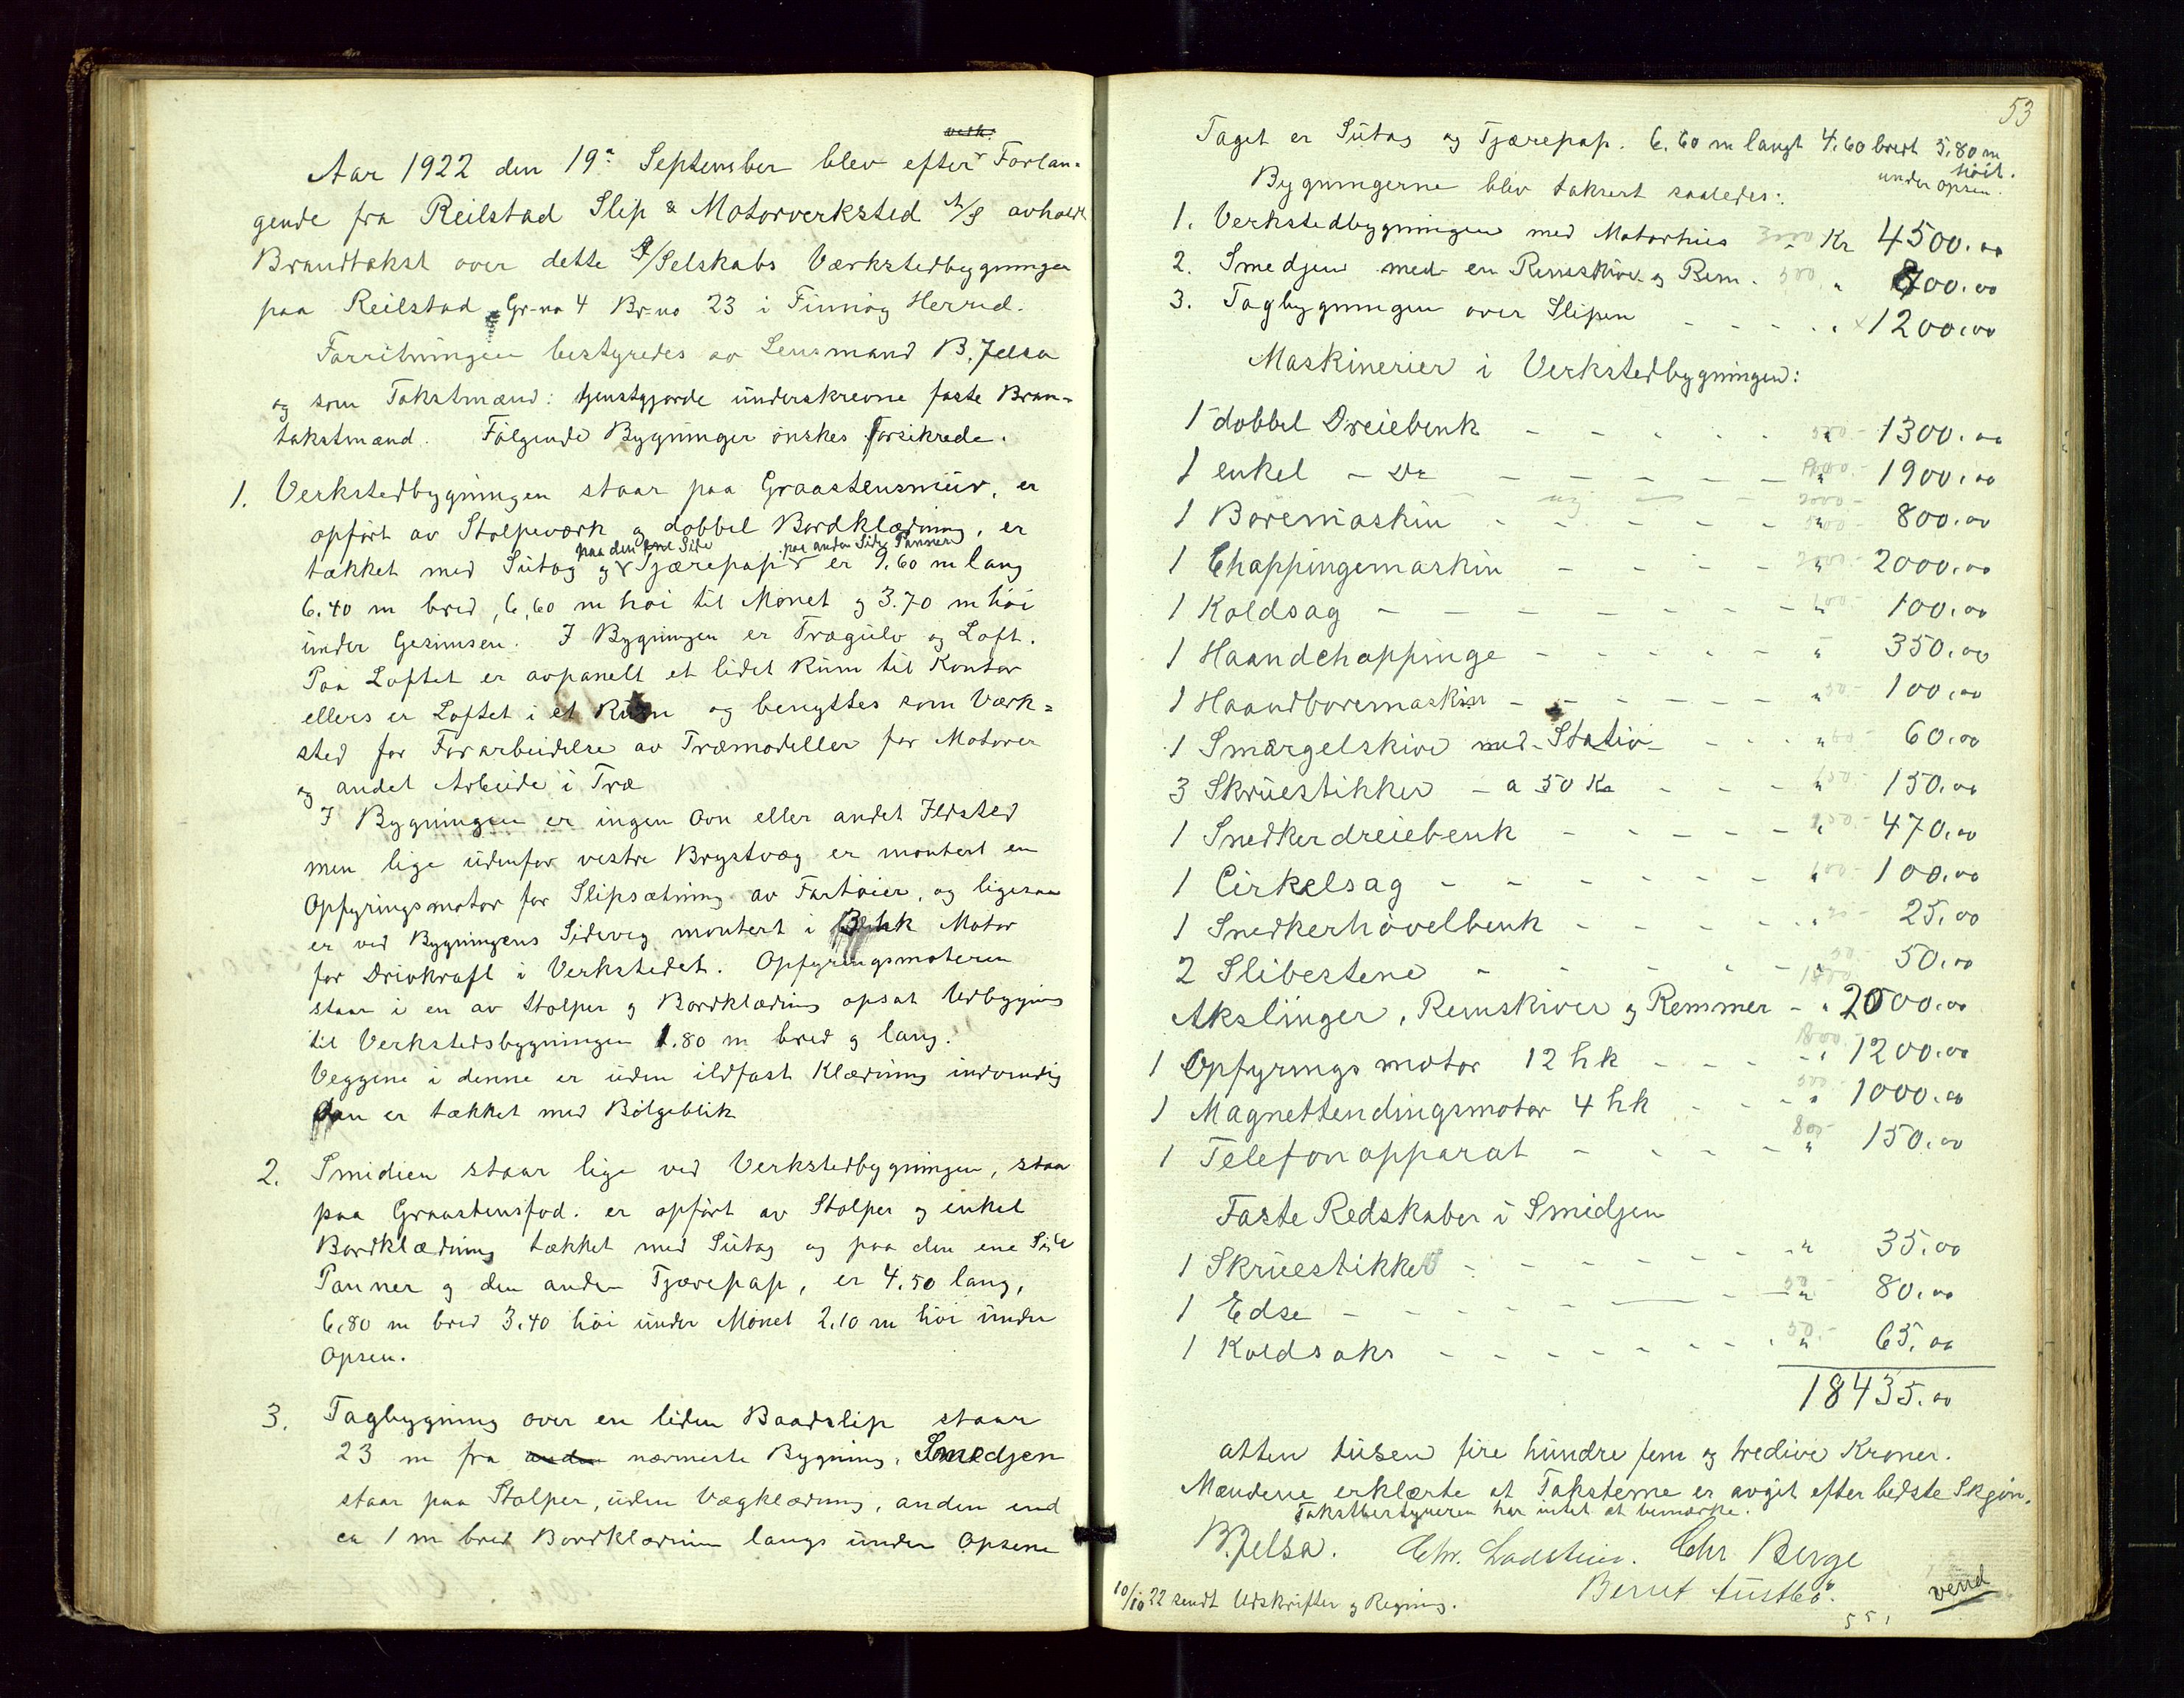 Aar 1922 den 19de September blev efter Forlan-
gende fra Reilstad Slip & Motorverksted A/S avholdt
Brandtakst over dette A/Selskabs Værkstedbygninger
paa Reilstad Gr-no 4 Br-no 23 i Finnøy Herred.
Forretningen bestyredes av Lensmand B. Jelsa
og som Takstmænd: tjenstgjorde underskrevne faste Bran-
takstmænd. Følgende Bygninger ønskes forsikrede.
1. Verkstedbygningen staar paa Graastensmur, er
opført av Stolpeværk og dobbel Bordklædning, er
paa den ene Side paa anden Side Panner
tækket med Sutag og Tjærepap er 9.60 m lang
6.40 m bred, 6,60 m høi til Mønet og 3.70 m høi
under Gesimsen. I Bygningen er Trægulv og Loft.
Paa Loftet er avpanelt et lidet Rum til Kontor
ellers er Loftet i et Rum og benyttes som Værk=
sted for Forarbeidelse av Træmodeller for Motorer
og andet Arbeide i Træ
I Bygningen er ingen Ovn eller andet Ildsted
men lige udenfor vestre Brystvæg er montert en
Opfyringsmotor for Slipsætning av Fartøier, og ligesaa
er ved Bygningens Sideveg montert i Motor
for Drivkraft i Verkstedet. Opfyringsmotoren
staar i en av Stolper og Bordklædning opsat Udbygning
til Verkstedsbygningen 1.80 m bred og lang.
Veggene i denne er uden ildfast Klædning indvendig
er tækket med Bølgeblik
2. Smidien staar lige ved Verkstedbygningen, staar
paa Graastensfod. er opført av Stolper og enkel
Bordklædning tækket med Sutag og paa den ene Side
Panner og den anden Tjærepap, er 4.50 lang,
6,80 m bred 3.40 høi under Mønet 2.10 m høi under
Opsen.
3. Tagbygning over en liden Baadslip staar
23 m fra nærmeste Bygning, Smedjen
staar paa Stolper, uden Vægklædning, anden end
ca 1 m bred Bordklædning langs under Opsene
53
Taget er Sutag og Tjærepap. 6.60 m langt 4.60 bredt 3,80 m
høit.
under opsen.
Bygningerne blev taksert saaledes:
1. Verkstedbygningen med Motorhus Kr 4500.00
2. Smedjen med en Remskive og Rem. " 800.00
3. Tagbygningen over Slipen - - - - " 1200.00
Maskinerier i Verkstedbygningen:
1 dobbel Dreiebenk - - - - - " 1300.00
1 enkel - Do - - - - - " 1900.00
1 Boremaskin - - - - - " 800.00
1 Chappingemaskin - - - - " 2000.00
1 Koldsag - - - - - - - " 100.00
1 Haandchappinge - - - - - " 350.00
1 Haandboremaskin - - - - - " 100.00
1 Smærgelskive med Stativ - - - " 60.00
3 Skruestikker - a 50 Kr - - - " 150.00
1 Snedkerdreiebenk - - - - - " 470.00
1 Cirkelsag - - - - - - " 100.00
1 Snedkerhøvelbenk - - - - - " 25.00
2 Slibestene - - - - - " 50.00
Akslinger, Remskiver og Remmer - " 2000.00
1 Opfyringsmotor 12 hk - - - - " 1200.00
1 Magnettendingsmotor 4 hk - - - " 1000.00
1 Telefonapparat - - - - - " 150.00
Faste Redskaber i Smidjen
1 Skruestikke - - - - - - " 35.00
1 Edse - - - - - - " 80.00
1 Koldsaks - - - - - - - " 65.00
18435.00
atten tusen fire hundre fem og tredive Kroner.
Mændene erklærte at Taksterne er avgit efter bedste Skjøn.
Takstbestyreren har intet at bemærke.
B. Jelsa. Chr. Ladstein. Chr Berge
Bernt Tustbø.
10/10 22 sendt Udskrifter og Regning.
vend
551